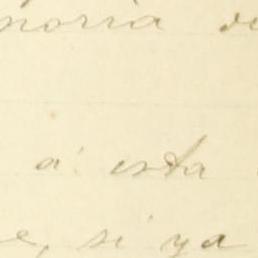 noria de
á esta
e, si ya